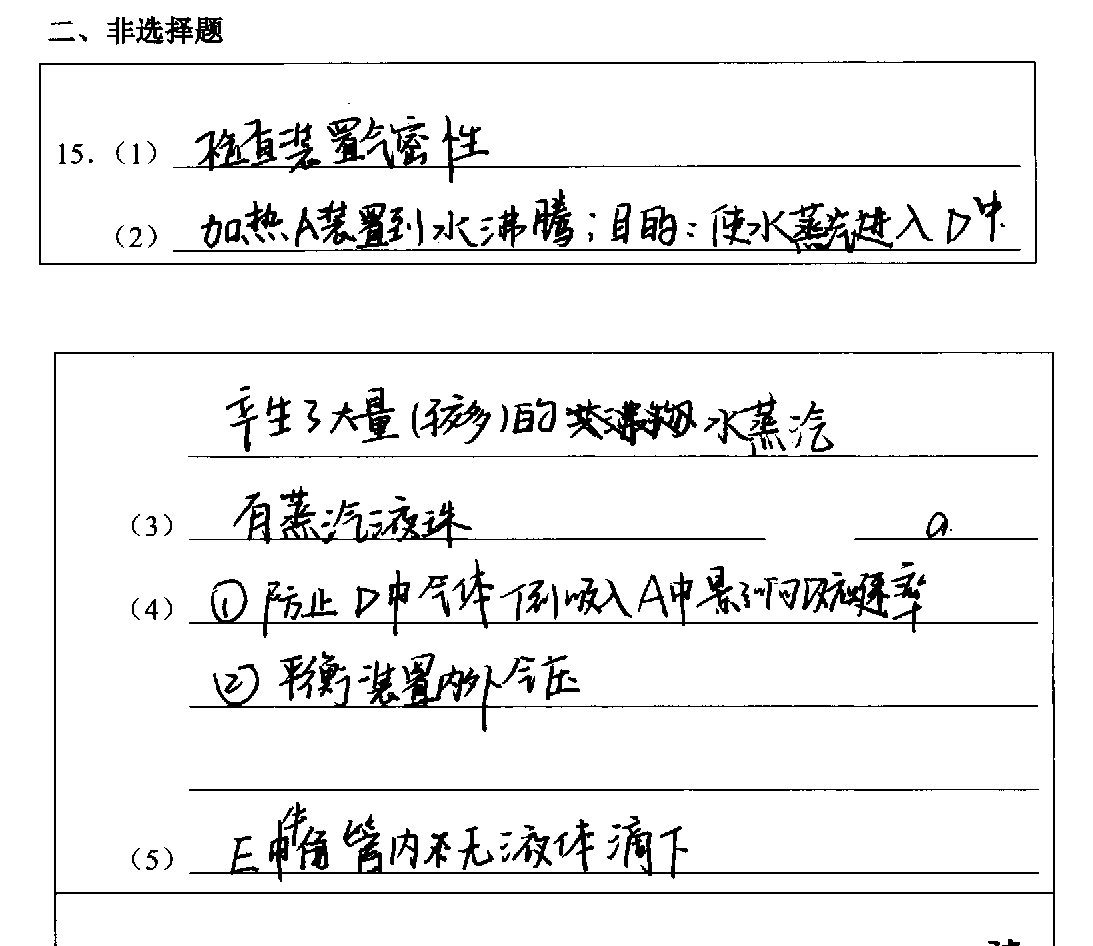 二、非选择题
15.（1） 检查装置气密性
（2） 加热A装置到水沸腾；目的：使水蒸汽进入D中
产生了大量（较多）的 水蒸汽
（3） 有蒸汽液珠 a
（4） ①防止D中气体倒吸入A中影响
②平衡装置内外气压
（5） E中牛角管内无液体滴下